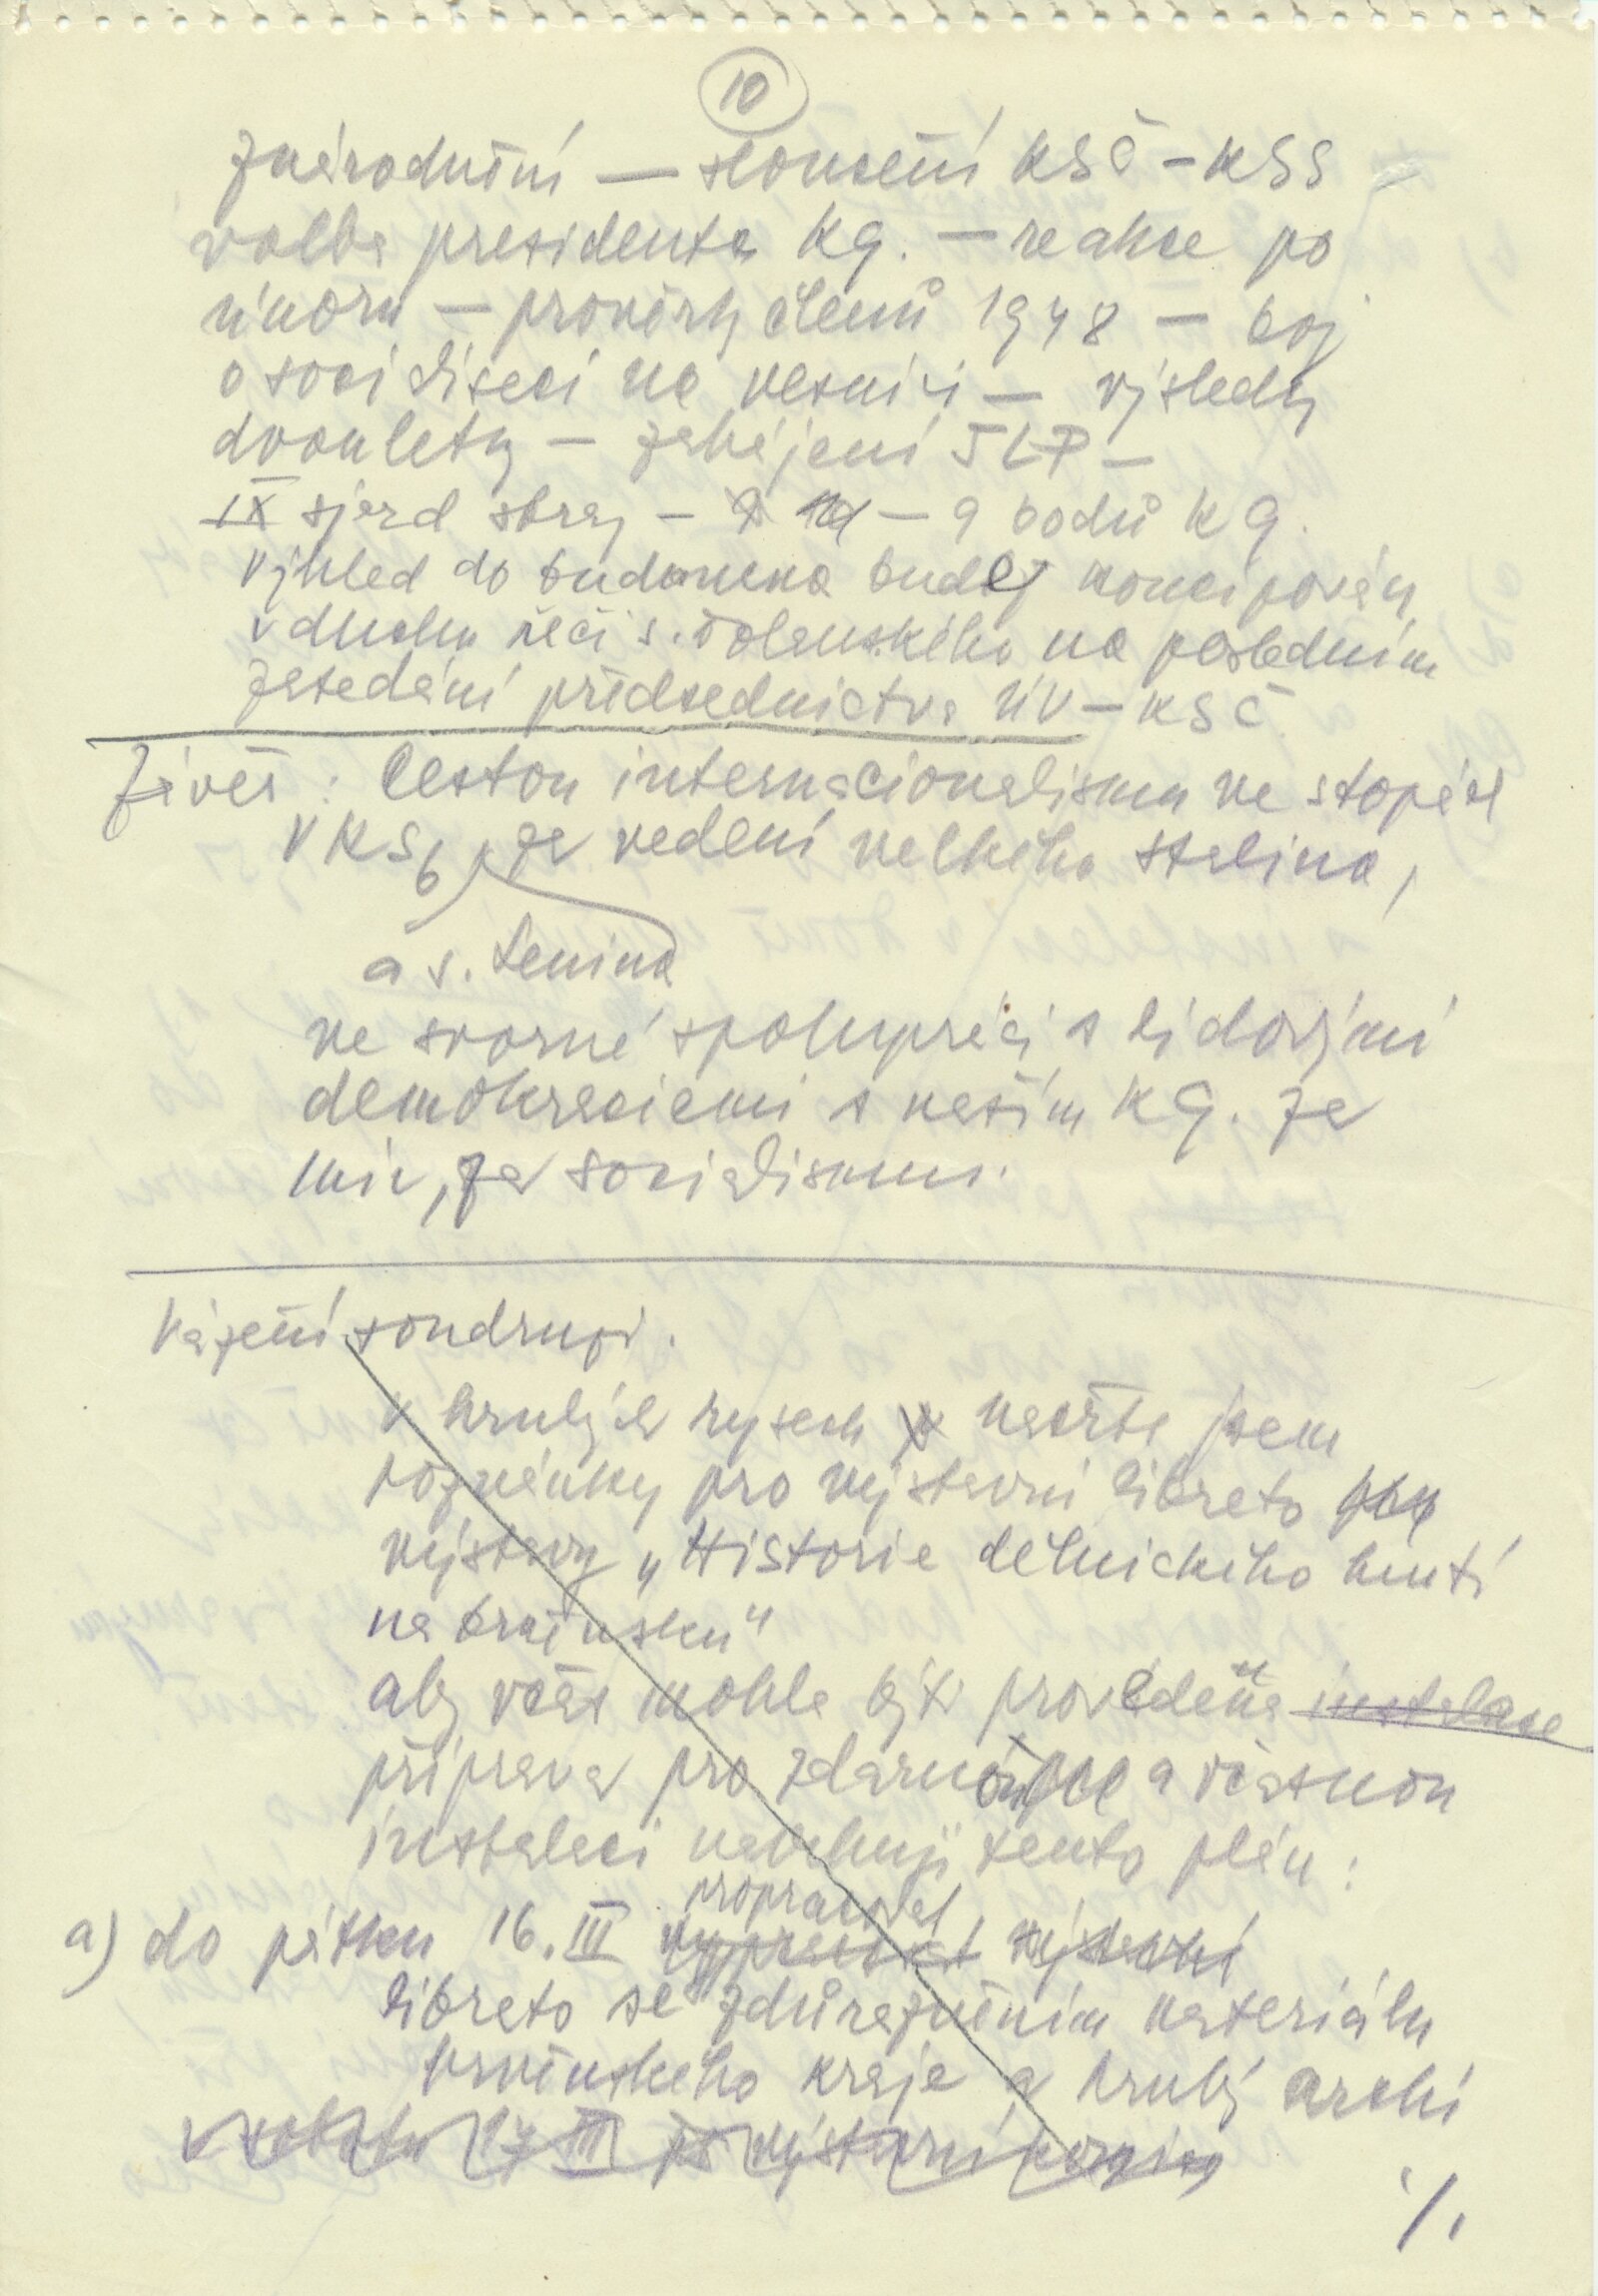 10
znárodnění — sloučení KSČ – KSS
volba presidenta KG. — reakce po
únoru — prověrky členů 1948 — boj
o socialisaci na vesnici — výsledky
dvouletky — zahájení 5LP —
IX sjezd strany — 9 bodů KG.
Výhled do budoucna budej koncipován
v duchu řeči s. Dolanského na posledním
zasedání předsednictva ÚV – KSČ
Závěr: Cestou internacionalismu ve stopách
VKSb, za vedení velkého Stalina,
a s. Lenina
ve svorné spolupráci s lidovými
demokraciemi s naším KG. za
mír, za socialismus.
Vážení soudruzi.
v hrubých rysech načrtl jsem
poznámky pro výstavní libreto
výstavy „Historie dělnického hnutí
na brněnsku"
aby včas mohla být provedena instalace
příprava pro zdárnou a včasnou
instalaci navrhuji tento plán:
propracovat
a) do pátku 16. III vypracovat výstavní
libreto se zdůrazněním materiálu
brněnského kraje a hrubý archi
v sobotu 17 III výstavní
·/.